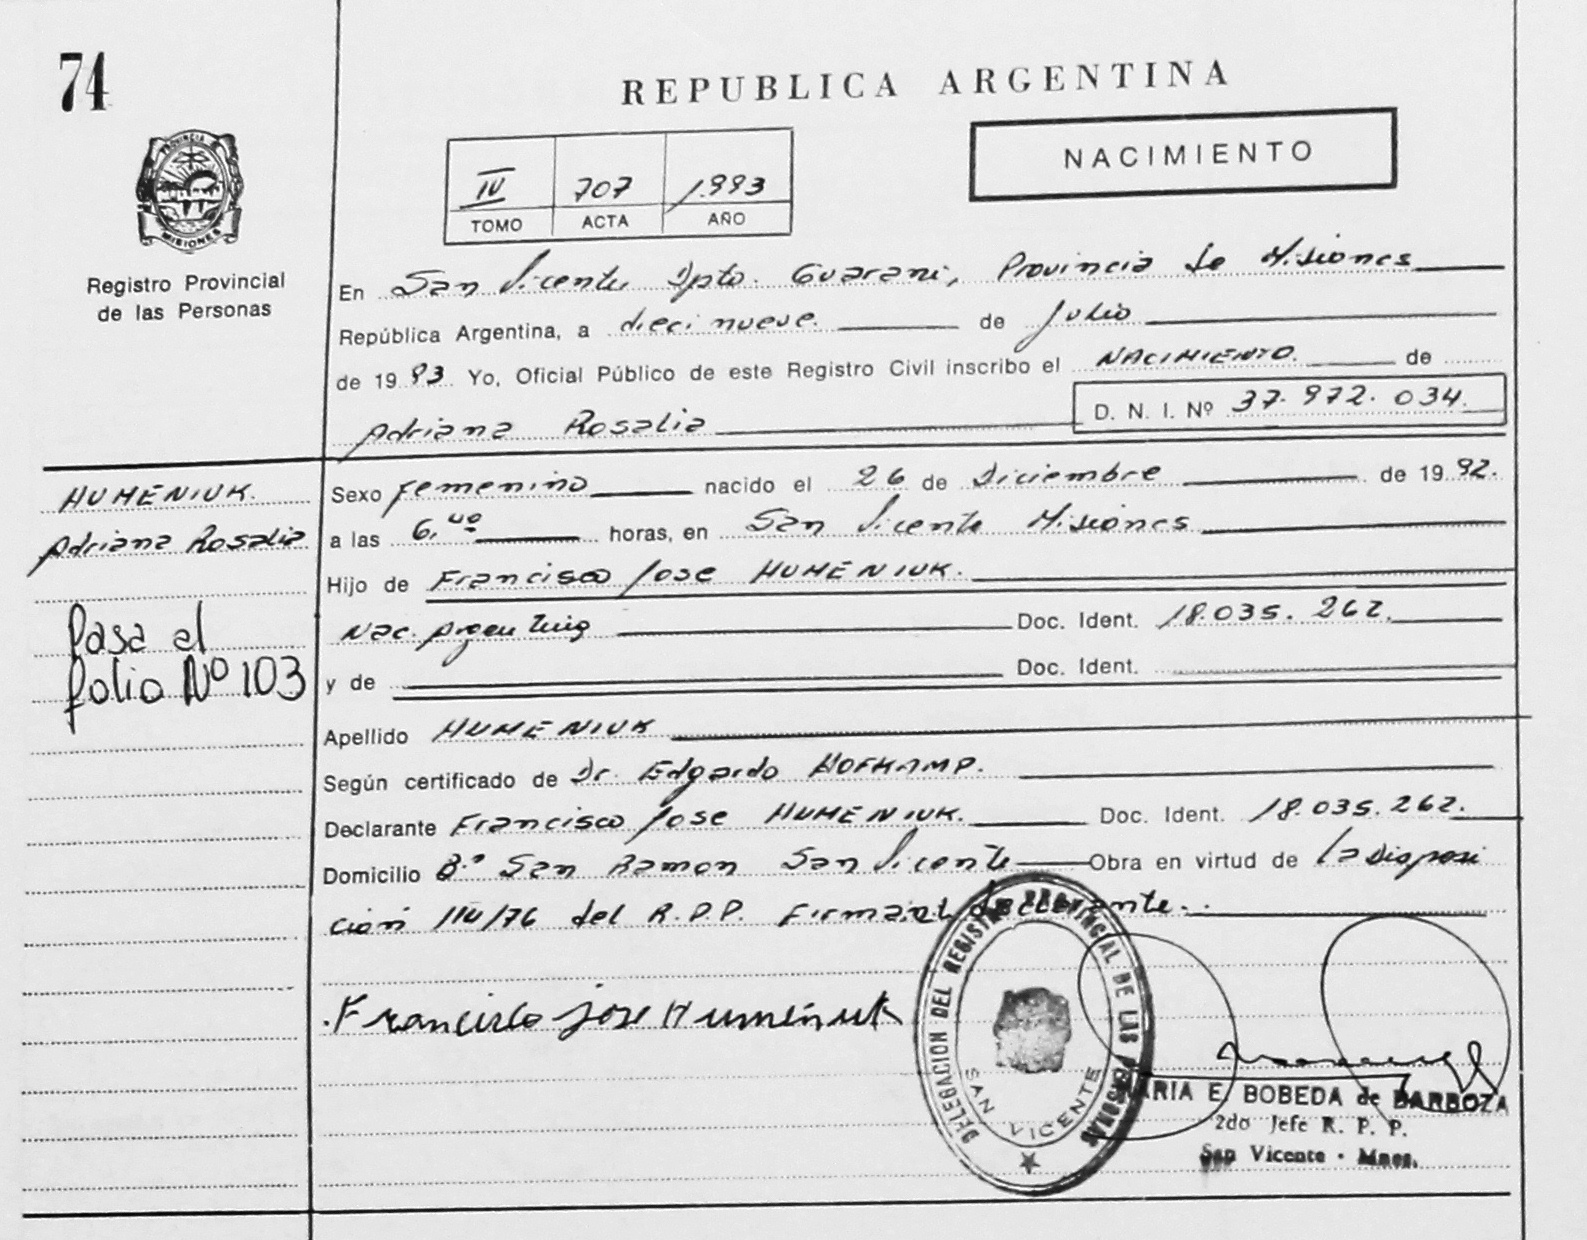 74
REPUBLICA ARGENTINA
PROVINCIA DE
MISIONES
Registro Provincial
de las Personas
IV 707 1.993
TOMO ACTA AÑO
NACIMIENTO
En San Vicente, Dpto. Guarani, Provincia de Misiones
República Argentina, a dieci nueve. de Julio
de 19 93 Yo, Oficial Público de este Registro Civil inscribo el NACIMIENTO. de
Adriana Rosalia D. N. I. Nº 37. 972. 034.
HUMENIUK.
Adriana Rosalia
Pasa al
folio Nº 103
Sexo femenino nacido el 26 de Diciembre de 19 92.
a las 6,40 horas, en San Vicente Misiones
Hijo de Francisco Jose HUMENIUK.
Nac. Argentina Doc. Ident. 18.035. 262.
y de Doc. Ident.
Apellido HUMENIUK
Según certificado de Dr. Edgardo HOFKAMP.
Declarante Francisco Jose HUMENIUK. Doc. Ident. 18.035.262.
Domicilio Bº San Ramon San Vicente Obra en virtud de la Disposi
ción 114/76 del R.P.P. Firma el declarante..
Francisco jose Humeniuk
DELEGACION DEL REGISTRO PROVINCIAL DE LAS PERSONAS
SAN VICENTE
MARIA E. BOBEDA de BARBOZA
2do Jefe R. P. P.
San Vicente - Mnes.